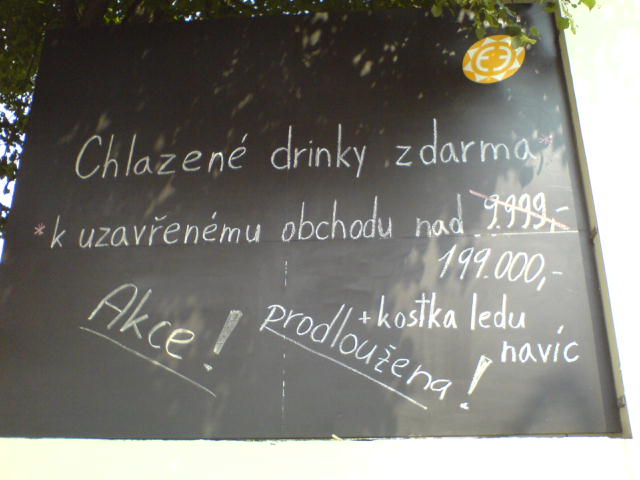 Chlazené drinky zdarma*
*k uzavřenému obchodu nad 9.999,-
199.000,-
Akce! Prodloužena!
+ kostka ledu
navíc